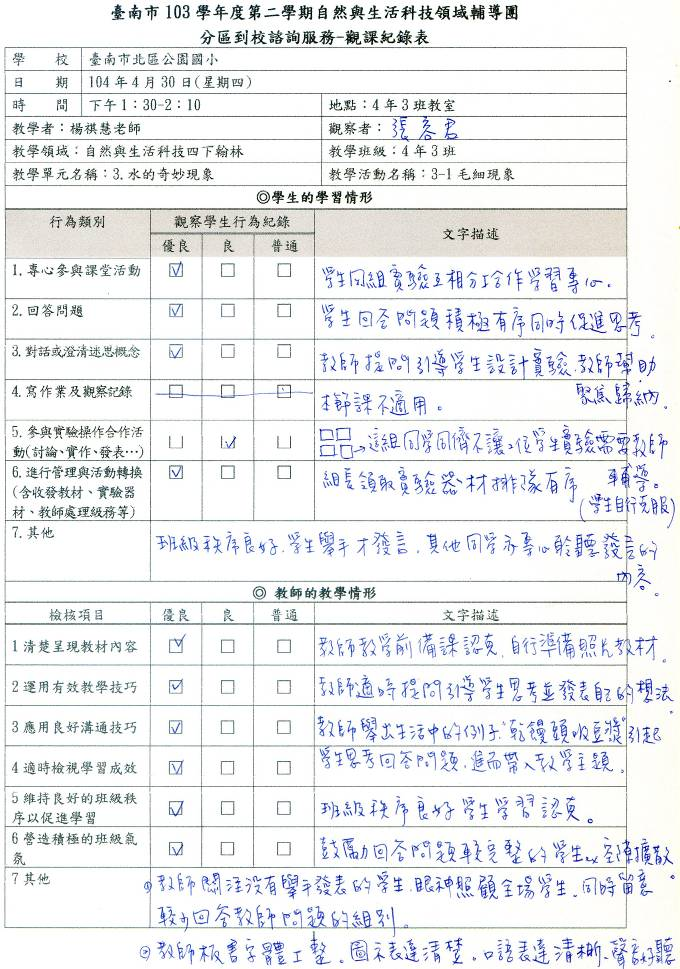 臺南市103學年度第二學期自然與生活科技領域輔導團
分區到校諮詢服務-觀課紀錄表
學 校 臺南市北區公園國小
日 期 104年4月30日(星期四)
時 間 下午1:30-2:10 地點:4年3班教室
教學者:楊祺慧老師 觀察者:張容君
教學領域:自然與生活科技四下翰林 教學班級:4年3班
教學單元名稱:3.水的奇妙現象 教學活動名稱:3-1毛細現象
◎學生的學習情形
行為類別 觀察學生行為紀錄 文字描述
優良 良 普通
1.專心參與課堂活動 學生同組實驗互相分工合作學習專心。
2.回答問題 學生回答問題積極有序同時促進思考。
3.對話或澄清迷思概念 教師提問引導學生設計實驗.教師幫助
聚焦歸納.
4.寫作業及觀察記錄 本節課不適用。
5.參與實驗操作合作活
動(討論、實作、發表…) 這組同學同儕不讓2位學生實驗需要教師
輔導。
6.進行管理與活動轉換
(含收發教材、實驗器
材、教師處理級務等) 組長領取實驗器材排隊有序
(學生自行克服)
7.其他 班級秩序良好.學生舉手才發言.其他同學亦專心聆聽發言的
內容。
◎ 教師的教學情形
檢核項目 優良 良 普通 文字描述
1清楚呈現教材內容 教師教學前備課認真.自行準備照片教材.
2運用有效教學技巧 教師適時提問引導學生思考並發表自己的想法.
3應用良好溝通技巧 教師舉出生活中的例子"乾饅頭吸豆漿"引起
學生思考回答問題.進而帶入教學主題。
4適時檢視學習成效
5維持良好的班級秩
序以促進學習 班級秩序良好學生學習認真。
6營造積極的班級氣
氛 鼓勵回答問題較完整的學生
7其他 教師關注沒有舉手發表的學生.眼神照顧全場學生.同時留意
較少回答教師問題的組別.
教師板書字體工整.圖示表達清楚.口語表達清晰、聲音好聽